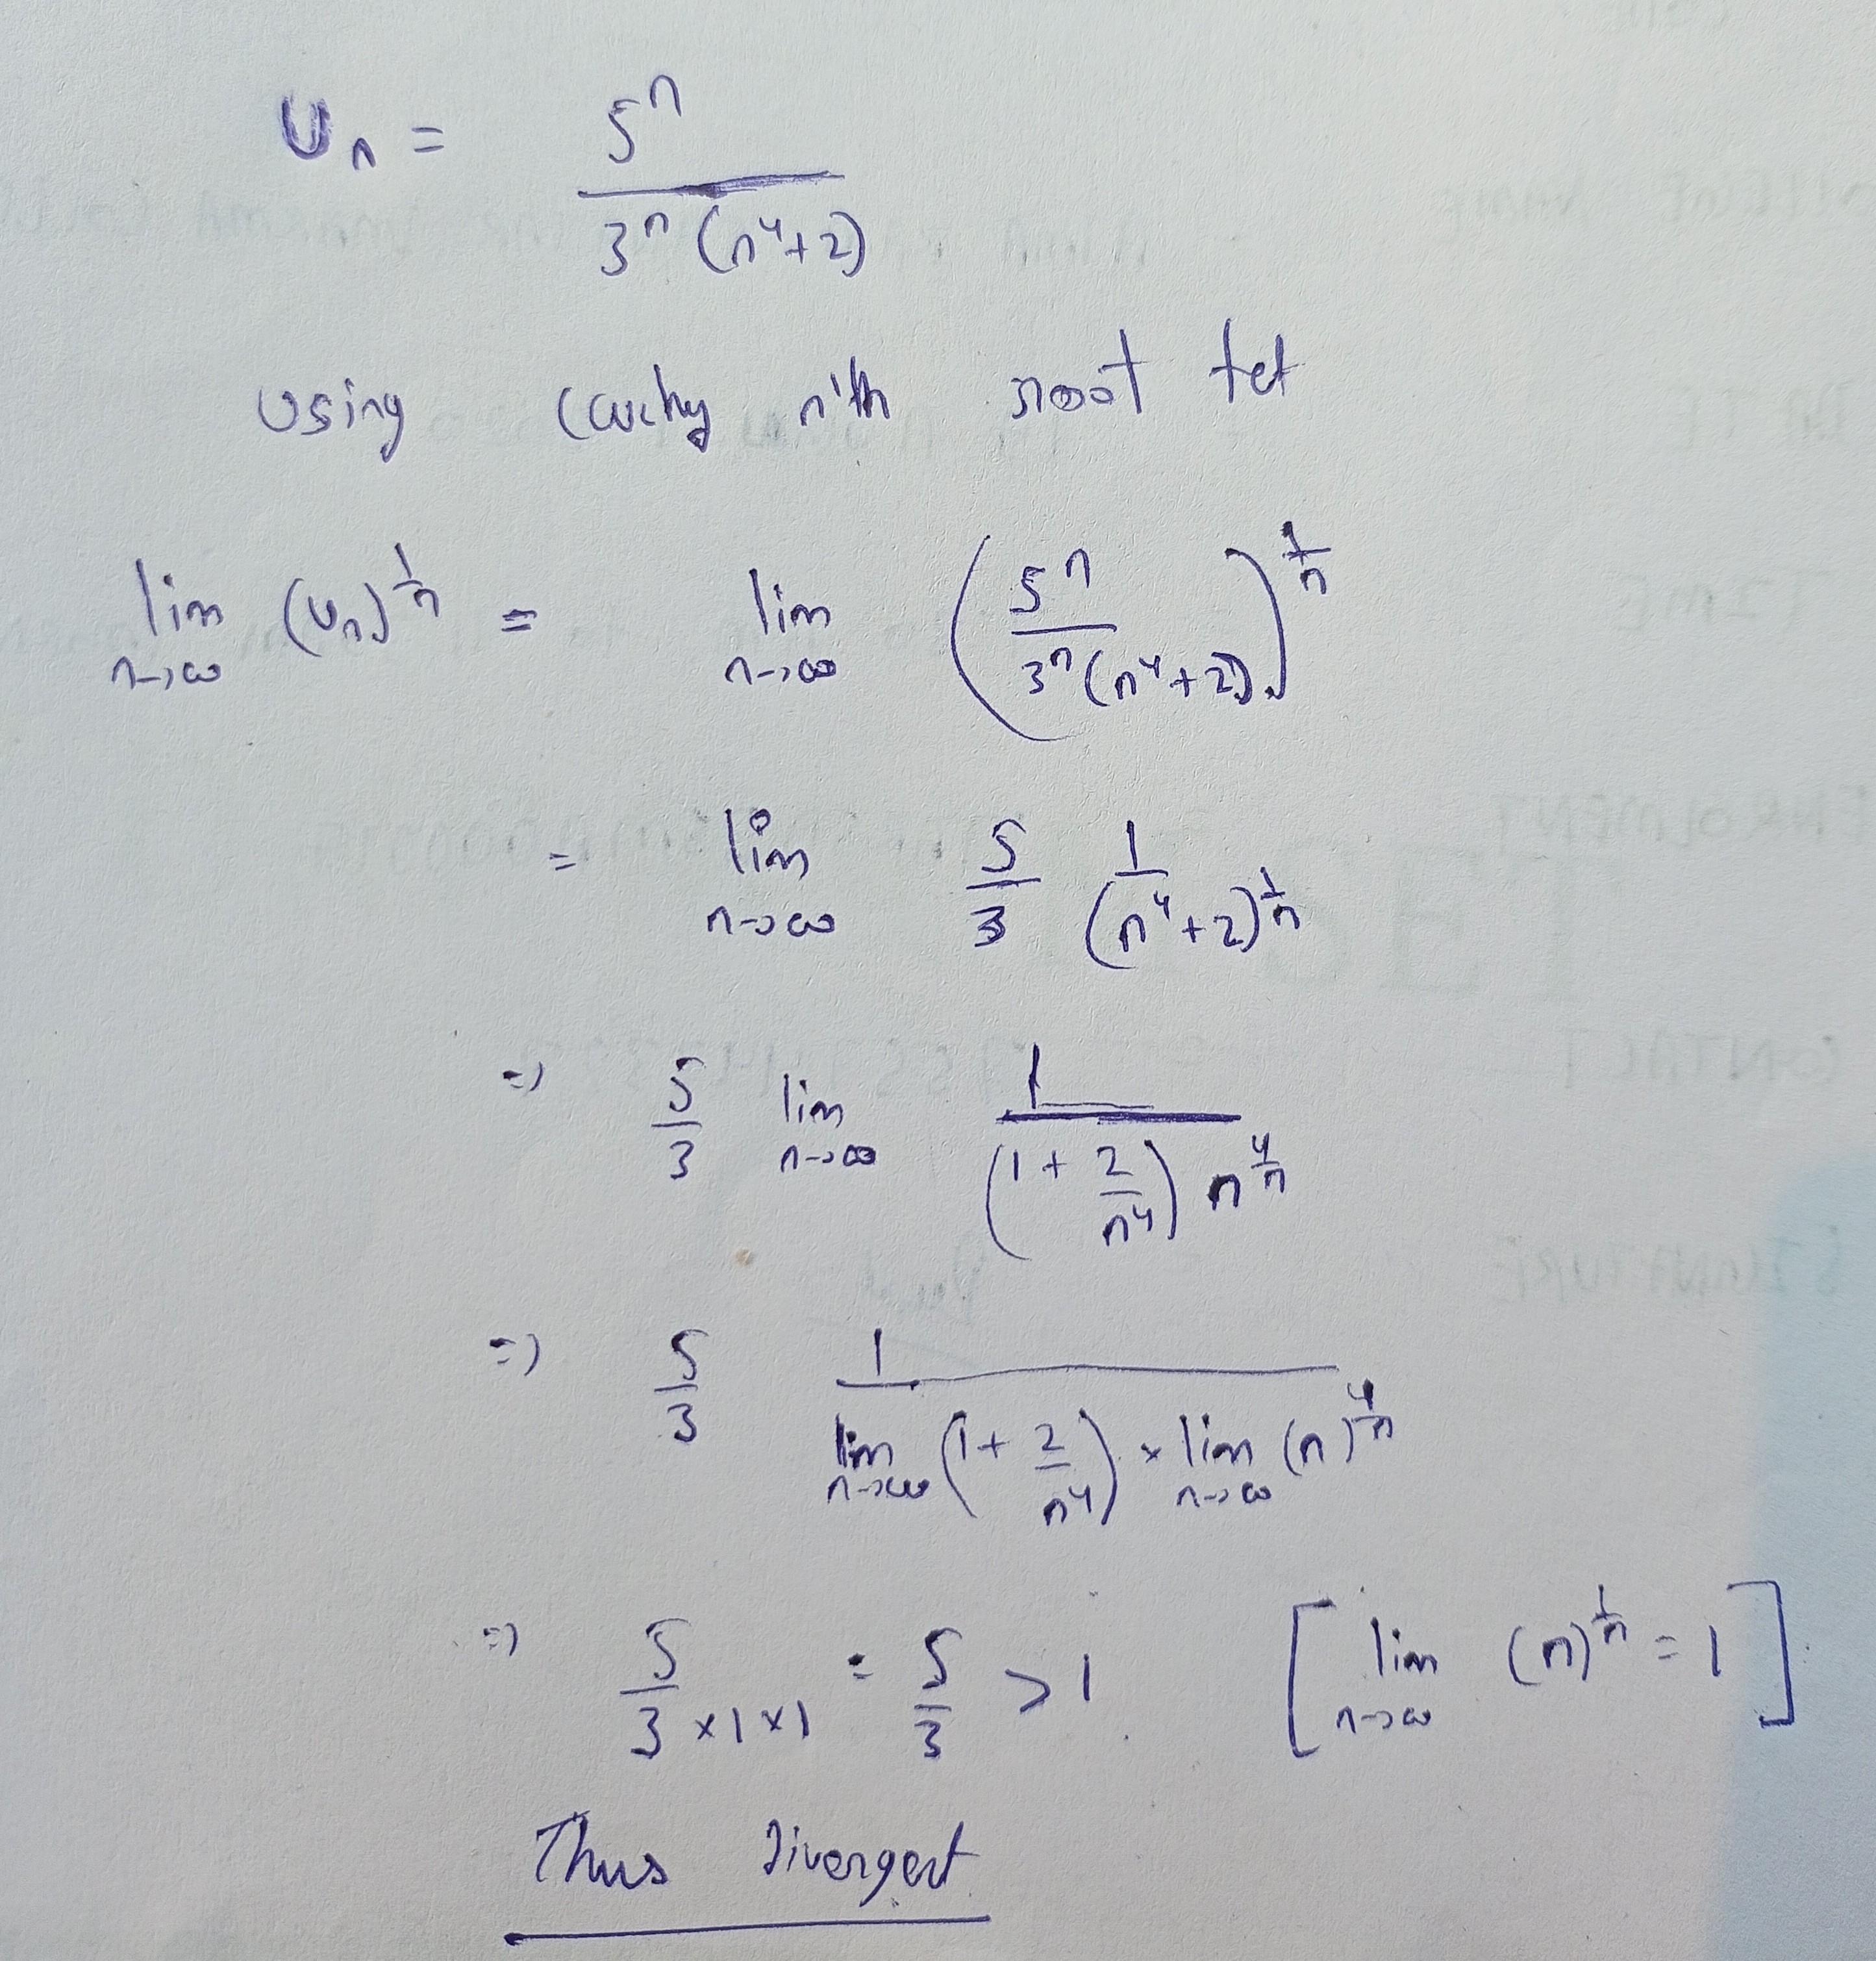 Un = 5^n / 3^n (n^4+2)
Using cauchy n'th root tet
lim n→∞ (Un)^1/n = lim n→∞ (5^n / 3^n (n^4+2))^1/n
= lim n→∞ 5/3 1/(n^4+2)^1/n
=> 5/3 lim n→∞ 1 / (1 + 2/n^4) n^4/n
=> 5/3 1 / lim n→∞ (1 + 2/n^4) × lim n→∞ (n)^4/n
=> 5/3 ×1×1 = 5/3 >1. [lim n→∞ (n)^1/n = 1]
Thus Divergent